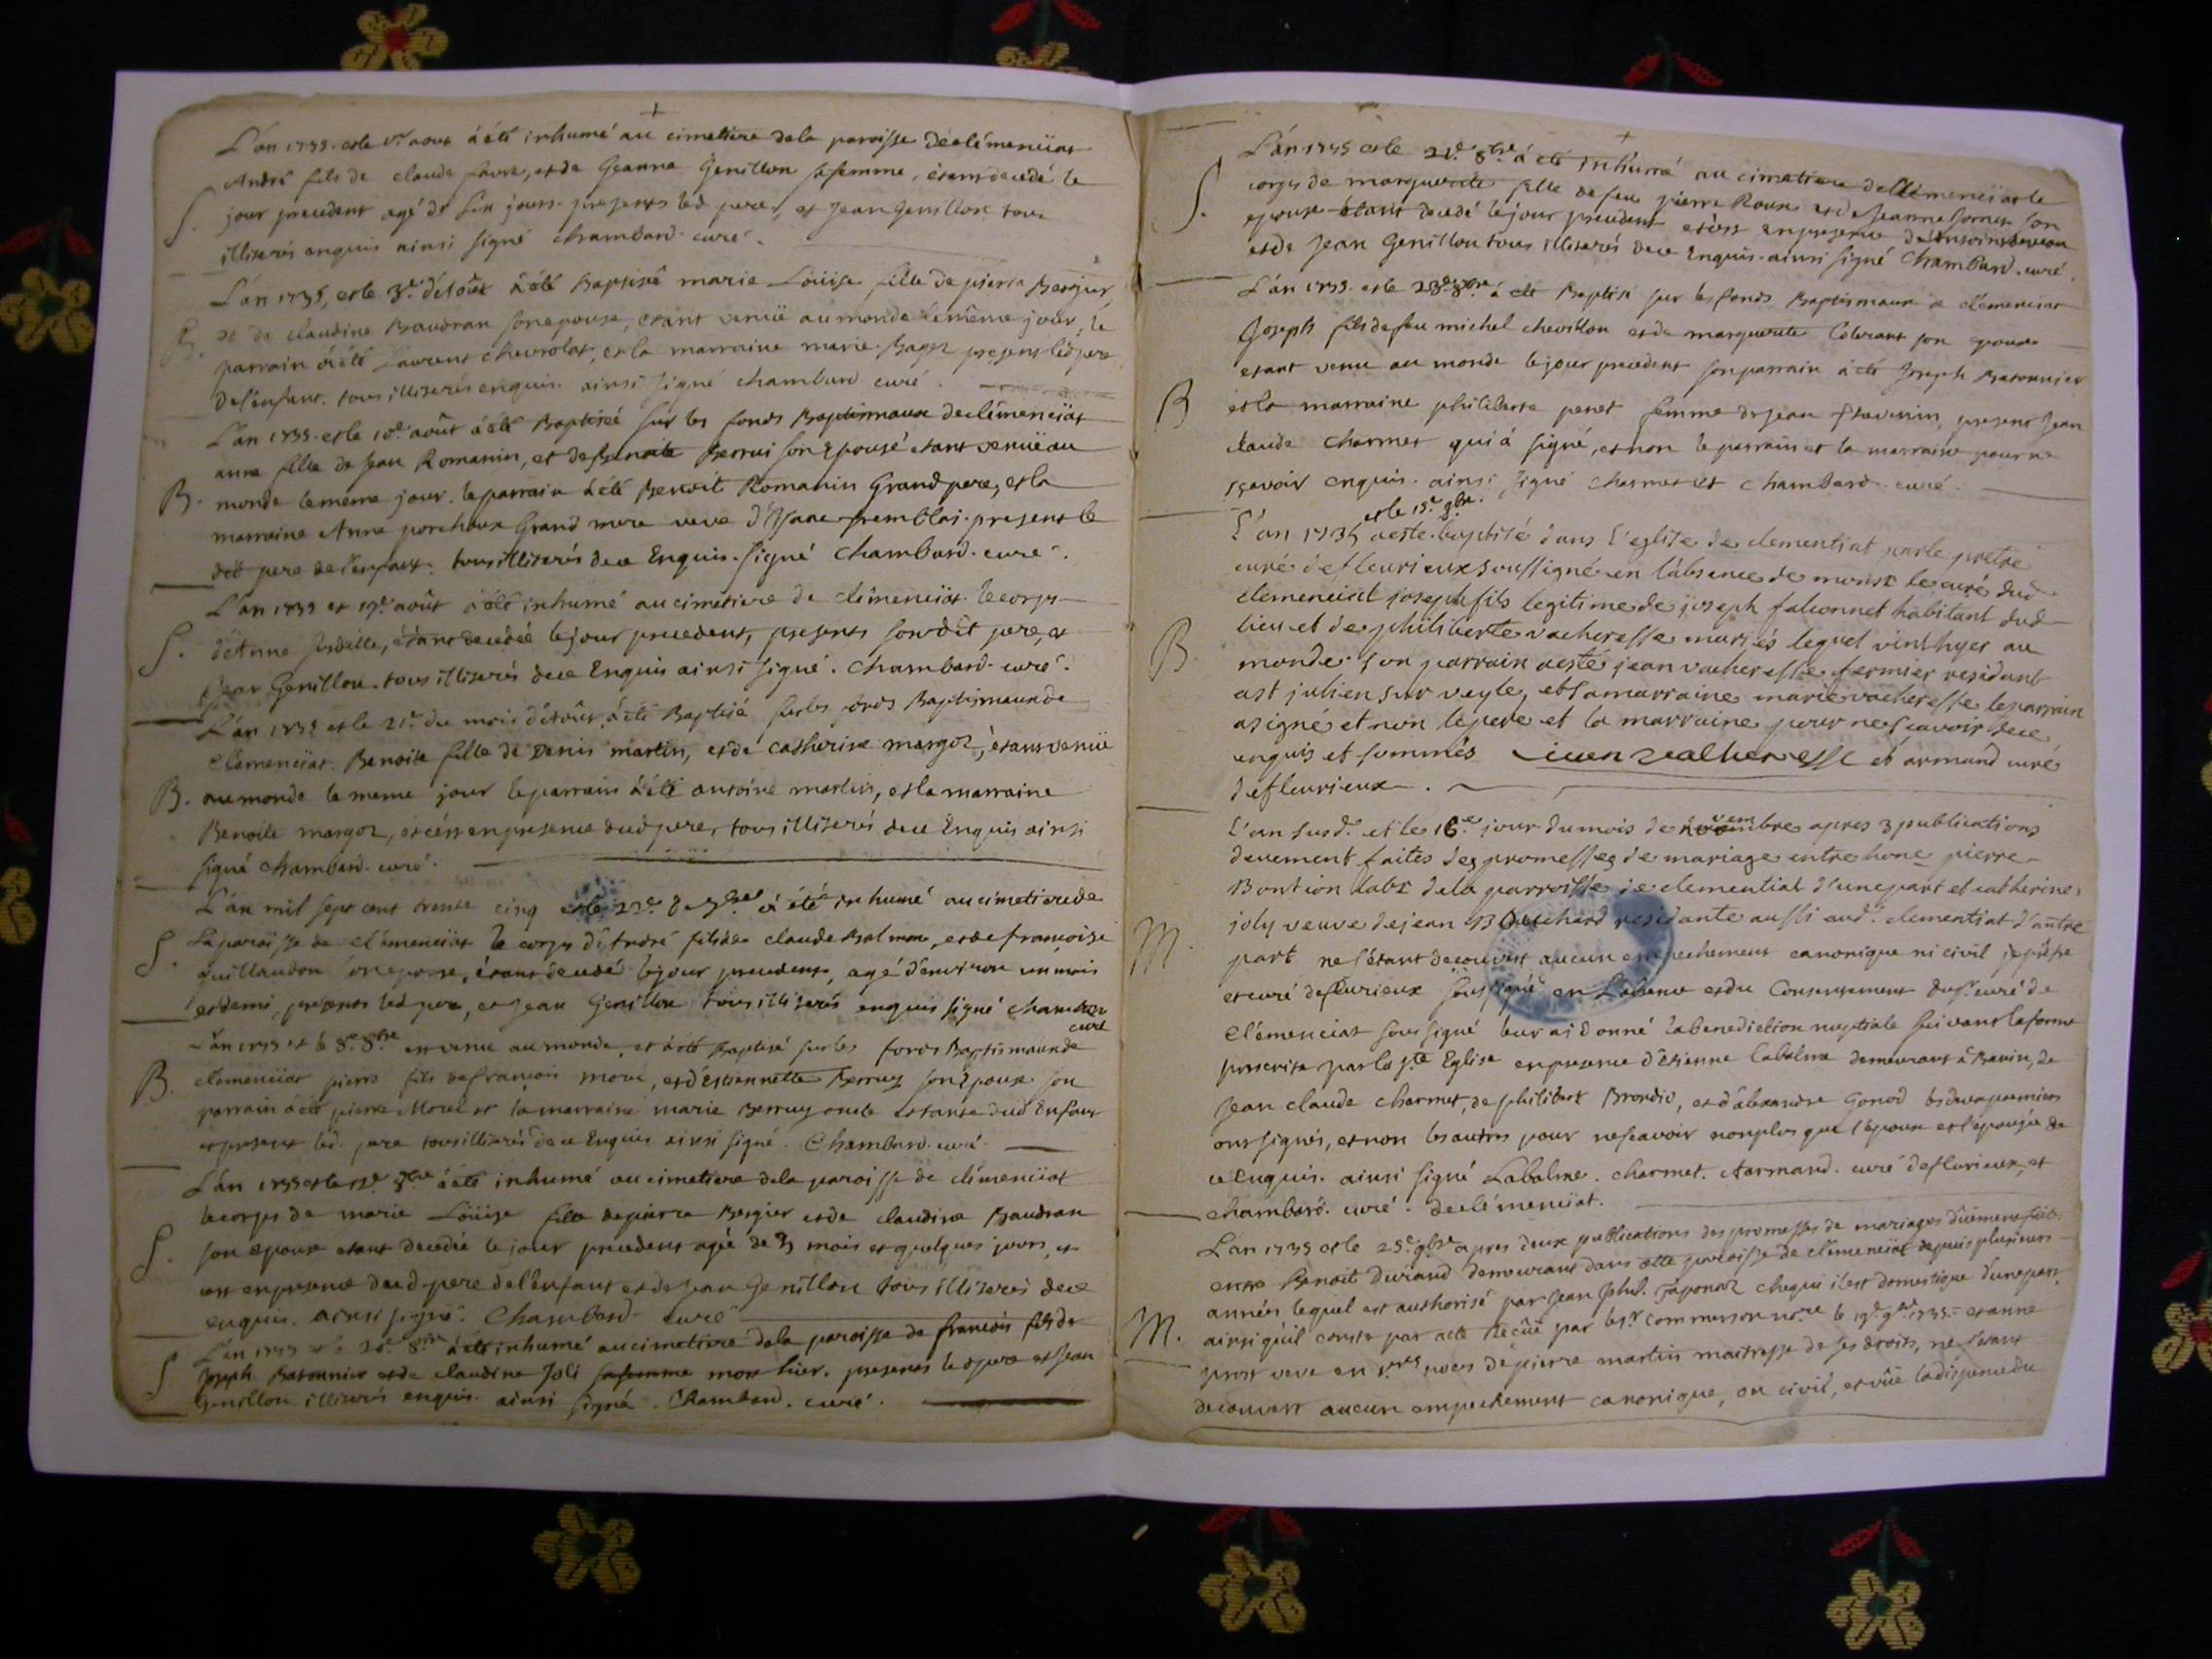 L'an 1735 et le 1er aout à été inhumé au cimetiere de la paroisse de clémenciat
André fils de claude favre, et de Jeanne Genillon sa femme, étant decedé le
S. jour precedent agé de six jours. presents led pere, et Jean Genillon, tous
illiterés enquis ainsi signé chambard curé.
L'an 1735, et le 3e d'août à été Baptisée marie Loüise fille de pierre Bergier,
B. et de claudine Baudran son epouse, etant venuë au monde le même jour, le
parrain à été Laurent chevrolat, et la marraine marie Bager present led pere
de l'enfant. tous illiterés enquis. ainsi signé chambard curé.
L'an 1735 et le 10e août à été Baptiseé sur les fonds Baptismaux de clémenciat
anne fille de Jean Romanin, et de Benoite Berrui son Epouse étant venuë au
B. monde le meme jour. le parrain à été Benoit Romanin Grand pere, et la
marraine Anne porchoux Grand mere veve d'Isaac tremblai. present le
dit pere de l'enfant. tous illiterés de ce Enquis. signé chambard. curé.
L'an 1735 et 19e août à été inhumé au cimetiere de clémenciat. le corps
S. d'Anne, étant decedeé le jour precedent, presents son dit pere, et
Jean Genillon. tous illiterés de ce Enquis ainsi signé. Chambard. curé.
L'an 1735 et le 21e du mois d'août, à été Baptisé sur les fonds Baptismaux de
clémenciat. Benoite fille de Denis martin, et de catherine margot, etant venuë
B. au monde le meme jour le parrain à été antoine martin, et la marraine
Benoite margot, et c'est en presence dud pere, tous illiterés de ce Enquis ainsi
signé chambard. curé.
L'an mil sept cent trente cinq et le 22e 7bre à été inhumé au cimetiere de
S. la paroisse de clémenciat le corps d'André fils de claude Balmon, et de francoise
Guillaudon son epouse, étant decedé le jour precedent, agé d'environ un mois
et demi, presents led pere, et Jean Genillon tous illiterés enquis signé chambard
curé
L'an 1735 et le 8e 8bre est venu au monde, et à été Baptisé sur les fonds Baptismaux de
B. clémenciat pierre fils de francois morel, et d'Estiennette Berruy son Epouse. son
parrain à été pierre Morel et la marraine marie Berruy oncle et tante dud Enfant
et present led. pere tous illiterés de ce Enquis ainsi signé. Chambard. curé.
L'an 1735 et le 12e 8bre à été inhumé au cimetiere de la paroisse de clémenciat
le corps de marie Loüise fille de pierre Bergier et de claudine Baudran
S. son epouse etant decedée le jour precedent agée de 3 mois et quelques jours, et
est en presence dud pere de l'enfant et de Jean Genillon tous illiterés de ce
enquis. ainsi signé. Chambard. curé
L'an 1735 et le 20e 8bre à été inhumé au cimetiere de la paroisse de francois fils de
S. Joseph Batonnier et de claudine Joli sa femme mort hier. presents led pere et Jean
Genillon illiterés enquis. ainsi signé. Chambard. curé.
L'an 1735 et le 21e 8bre à été inhumé au cimetiere de clémenciat le
corps de marguerite fille de feu pierre Roux et de Jeanne Sornet son
S. epouse étant decedé le jour precedent et c'est en presence d'Antoine
et de Jean Genillon tous illiterés de ce Enquis. ainsi signé Chambard. curé.
L'an 1735 et le 28e 8bre à été Baptisé sur les fonds Baptismaux de clémenciat
Joseph fils de feu michel chevillon et de marguerite Colovrant son epouse
etant venu au monde le jour precedent son parrain à été Joseph Batonnier
B et la marraine philiberte penet femme de Jean thevenin, present Jean
claude charmet qui à signé, et non le parrain et la marraine pour ne
sçavoir enquis. ainsi signé charmet et chambard. curé.
et le 15e 9bre.
L'an 1735 a esté baptisé dans l'eglise de clementiat par le pretre
curé de fleurieux soussigné en l'absence de monsr le curé dud
clemenciat joseph fils legitime de joseph falconnet habitant dud
lieu et de philiberte vacheresse mariés lequel vint hyer au
B. monde son parrain a esté jean vacheresse fermier residant
a st julien sur veyle, et sa marraine marie vacheresse le parrain
a signé et non le pere et la marraine pour ne scavoir de ce
enquis et sommés jean valheresse et armand curé
de fleurieux.
L'an susd. et le 16e jour du mois de novembre apres 3 publications
deuement faites des promesses de mariage entre hone pierre
Bontion labr de la parroisse de clementiat d'une part et catherine
joly veuve de jean Bouchard residante aussi aud. clementiat d'autre
M. part ne s'étant decouvert aucun empechement canonique ni civil je prêtre
et curé de flurieux soussigné en l'absence et du Consentement du sr curé de
clémenciat sous signé leur ai donné la benediction nuptiale suivant la forme
prescrite par la ste Eglise en presence d'étienne labalme demeurant à Banin, de
Jean claude charmet, de philibert Brondio, et d'alexandre Gonod les deux premiers
ont signés, et non les autres pour ne scavoir non plus que l'époux et l'épouse de
ce enquis. ainsi signé Labalme. charmet. Armand. curé de flurieux, et
chambard. curé. de clémenciat.
L'an 1735 et le 25e 9bre apres deux publications des promesses de mariages düement faites
entre Benoit Durand demeurant dans cette paroisse de clémenciat depuis plusieurs
années lequel est authorisé par Jean phil. Taponat chez qui il est domestique d'une part
M. ainsi qu'il conste par acte Recüe par le sr commerson nore le 19e 9bre 1735. et anne
prost veve en 1eres noces de pierre martin maitresse de ses droits, ne s'étant
decouvert aucun empechement canonique, ou civil, et vûe la dispense du